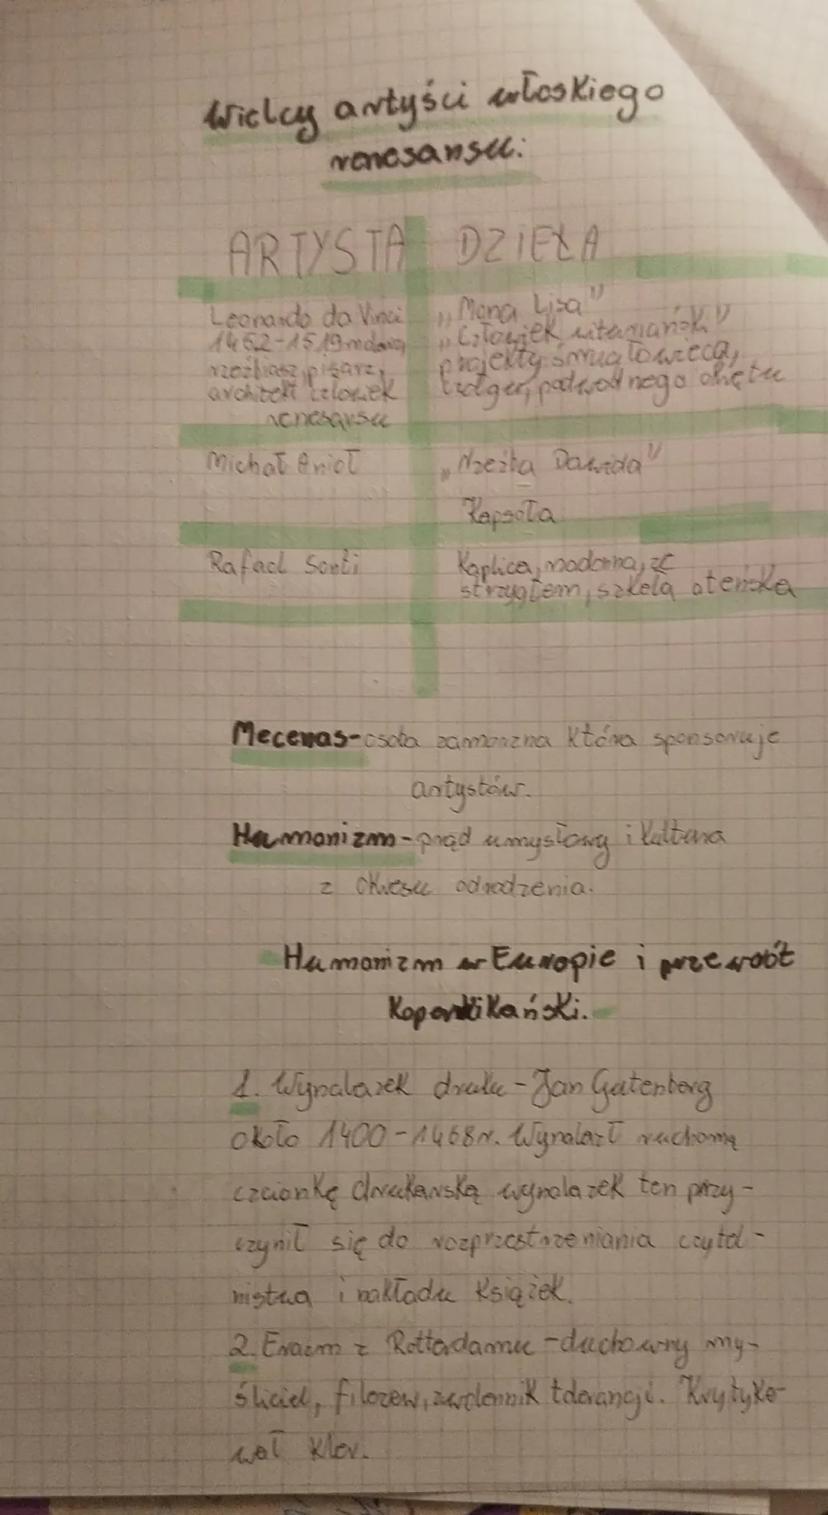 Wielcy artyści włoskiego
renesansu:
ARTYSTA DZIEŁA
Leonardo da Vinci
1452-1519
rzeźbiarz, pisarz,
architekt człowiek
renesansu
„Mona Lisa”
„Człowiek witruwiański”
projekty śmigłowca,
podwodnego okrętu
Michał Anioł
„Rzeźba Dawida”
Rafael Santi
Kaplica, madonna, ze
strzygłem, szkoła ateńska
Mecenas-osoba zamożna która sponsoruje
artystów.
Humanizm-prąd umysłowy i kultura
z okresu odrodzenia.
Humanizm w Europie i przewrót
Kopernikański.
1. Wynalazek druku-Jan Gutenberg
około 1400-1468r. Wynalazł ruchomą
czcionkę drukarską wynalazek ten przy-
czynił się do rozprzestrzeniania czytel-
nistwa i nakładu książek.
2. Erazm z Rotterdamu -duchowny my-
śliciel, filozew, zwolennik tolerancji. Krytyko-
wał kler.